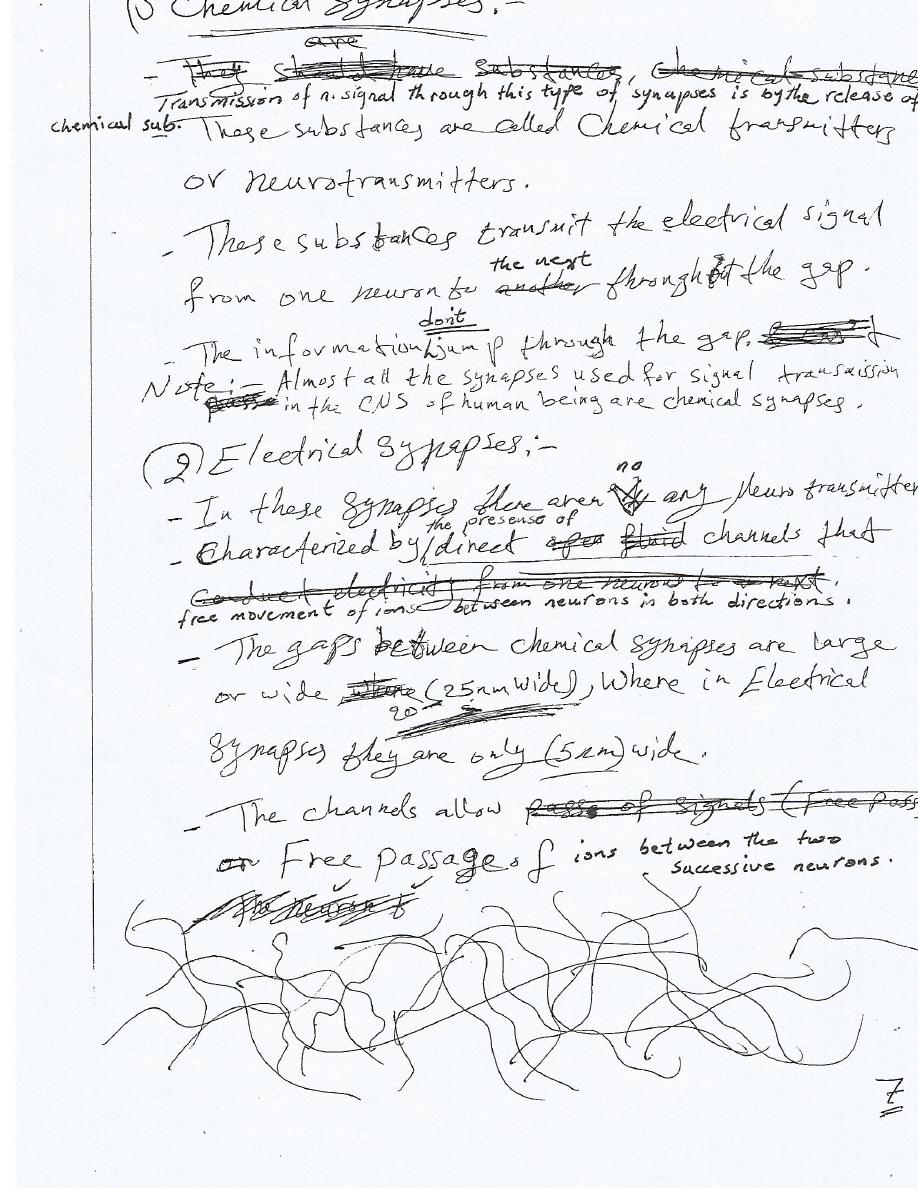 (1) Chemical Synapses:-
are
- They should have substances, chemical substance
Transmission of n. signal through this type of synapses is by the release of
chemical sub. These substances are called Chemical transmitters
or neurotransmitters.
- These substances transmit the electrical signal
the next
from one neuron to another through the gap.
don't
- The information jump through the gap.
Note:- Almost all the synapses used for signal transmission
passe in the CNS of human being are chemical synapses.
(2) Electrical Synapses:-
no
- In these synapses there aren any Neurotransmitter
the presense of
- Characterized by direct open fluid channels that
conduct electricity from one neurons to next.
free movement of ions between neurons in both directions.
- The gaps between chemical synapses are large
or wide where (25nm wide), Where in Electrical
20-
Synapses they are only (5nm) wide.
- The channels allow passe of signels (Free pass
or Free passage of ions between the two
successive neurons.
The neuron
7